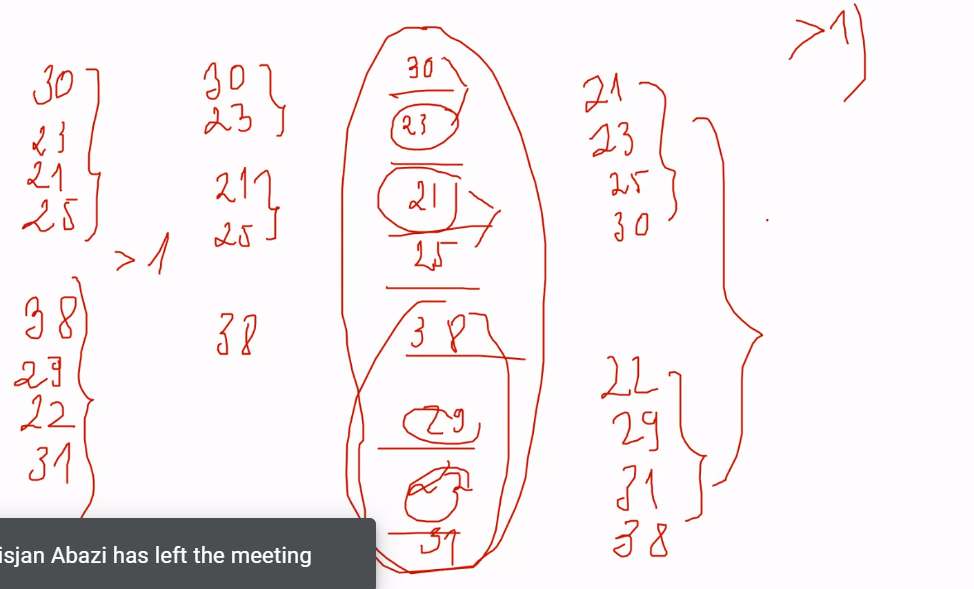 30
23
21
25
>1
38
29
22
31
30
23
21
25
38
30
23
21
25
38
29
31
21
23
25
30
22
29
31
38
>1)
isjan Abazi has left the meeting